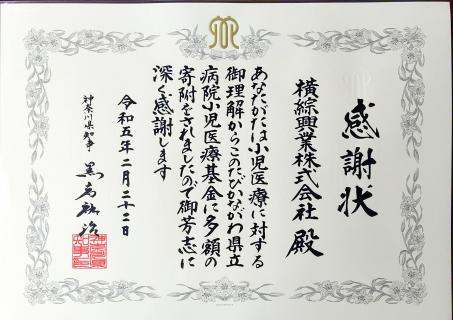 感謝状
横綜興業株式会社 殿
あなたがたは小児医療に対する
御理解からこのたびかながわ県立
病院小児医療基金に多額の
寄附をされましたので御芳志に
深く感謝します
令和五年二月二十二日
神奈川県知事 黒岩祐治